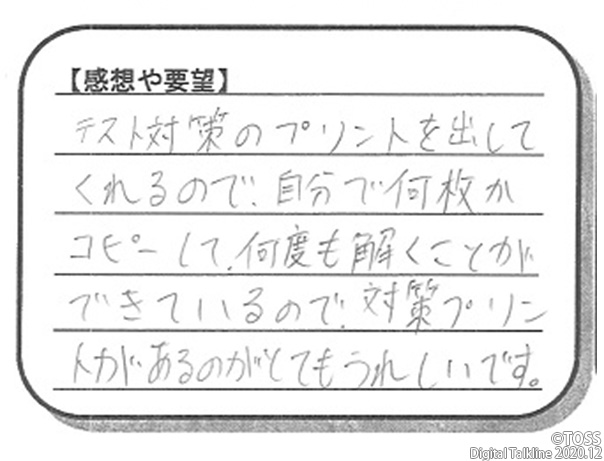 【感想や要望】
テスト対策のプリントを出して
くれるので、自分で何枚か
コピーして、何度も解くことが
できているので、対策プリン
トがあるのがとてもうれしいです。
©TOSS
Digital Talkline 2020.12